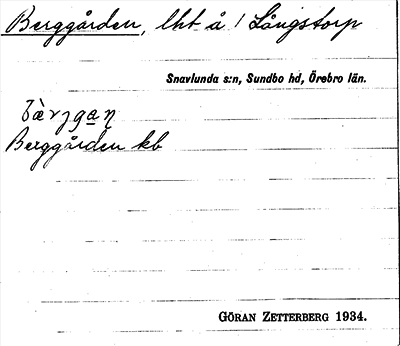 Berggården, lht å 1 Långstorp
Snavlunda s:n, Sundbo hd, Örebro län.
Berggården kb
GÖRAN ZETTERBERG 1934.